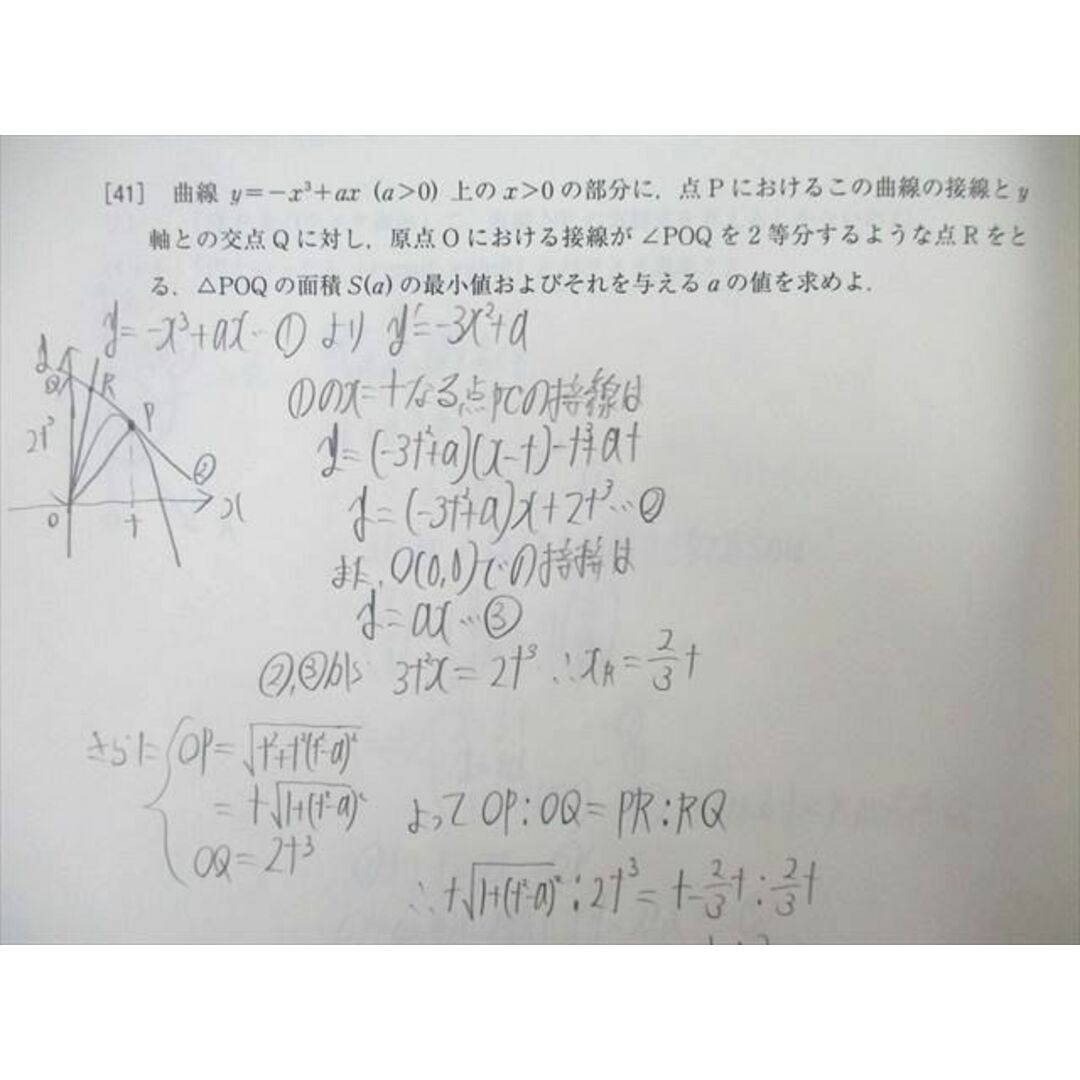 [41] 曲線 y=-x³+ax (a>0) 上の x>0 の部分に，点 P におけるこの曲線の接線と y
軸との交点 Q に対し，原点 O における接線が ∠POQ を 2 等分するような点 R をと
る．△POQ の面積 S(a) の最小値およびそれを与える a の値を求めよ．
y=-x³+ax…① より y'=-3x²+a
①のx=tなる点Pでの接線は
y=(-3t²+a)(x-t)-t³+at
y=(-3t²+a)x+2t³…②
また，O(0,0)での接線は
y=ax…③
②,③から 3t²x=2t³ ∴x_R=2/3 t
y
Q
R
P
2t³
②
O
t
x
さらに OP=√(t²+t²(t²-a)²)
=t√(1+(t²-a)²)
OQ=2t³
よって OP:OQ=PR:RQ
∴t√(1+(t²-a)²):2t³=t-2/3 t:2/3 t